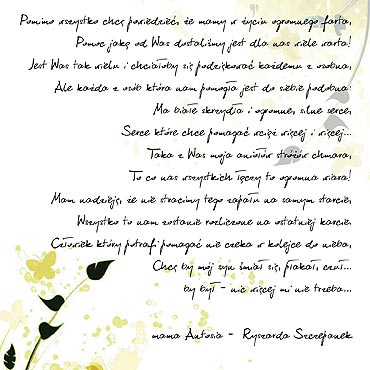 Pomimo wszystko chcę powiedzieć, że mamy w życiu ogromnego farta,
Pomoc jaką od Was dostaliśmy jest dla nas wiele warta!
Jest Was tak wielu i chciałoby się podziękować każdemu z osobna,
Ale każda z osób która nam pomogła jest do siebie podobna:
Ma białe skrzydła i ogromne, silne serce,
Serce które chce pomagać wciąż więcej i więcej...
Taka z Was moja aniołów stróżów chmara,
To co nas wszystkich łączy to ogromna wiara!
Mam nadzieję, że nie stracimy tego zapału na samym starcie,
Wszystko to nam zostanie rozliczone na ostatniej karcie.
Człowiek który potrafi pomagać nie czeka w kolejce do nieba,
Chcę by mój syn śmiał się, płakał, czuł...
by był - nic więcej mi nie trzeba...
mama Antosia - Ryszarda Szczepanek